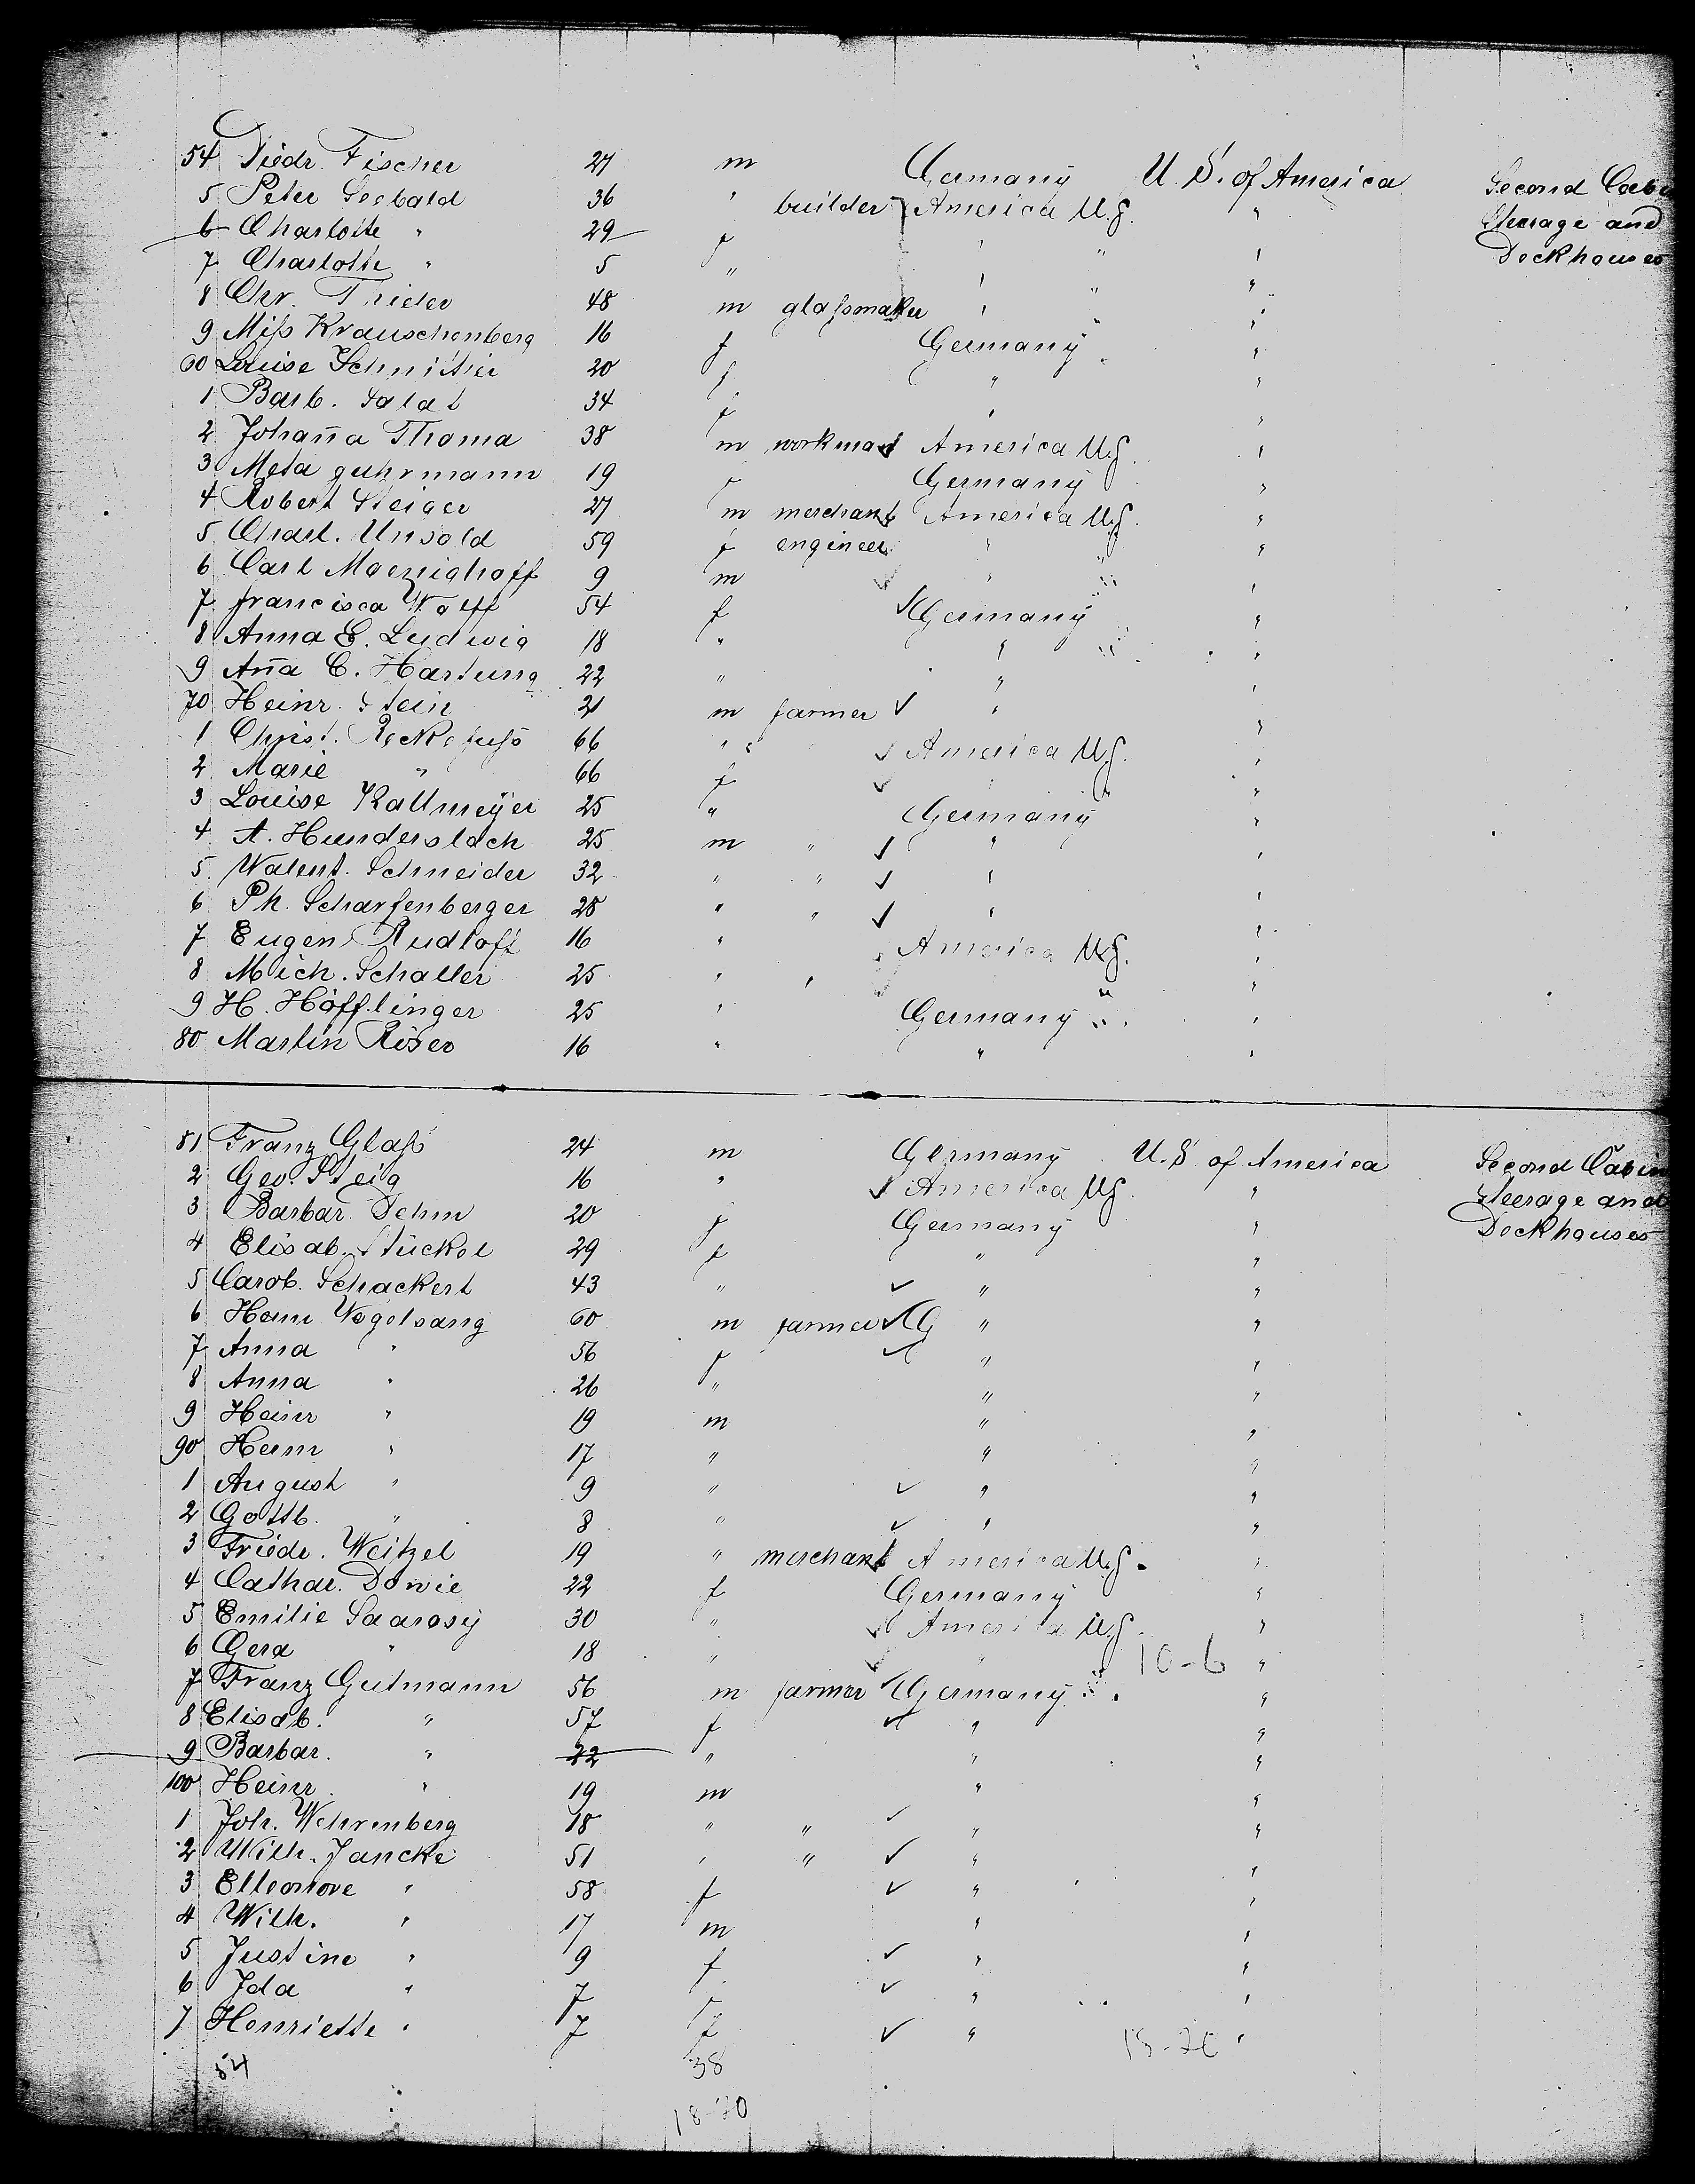 54 Diedr. Fischer 27 m Germany U. S. of America Second Cabin
5 Peter Seebald 36 " builder America U.S. " Steerage and
6 Charlotte " 29 f " " " Deckhouses
7 Charlotte " 5 " " " "
8 Chr. 48 m glaßmaker " " "
9 Miß Krauschenberg 16 f Germany "
60 Louise 20 f " "
1 Barb. Salat 34 f " "
2 Johan̄a Thoma 38 m workman America U.S. "
3 Meta guhrmann 19 f Germany "
4 Robert Steiger 27 m merchant America U.S. "
5 Charl. Unsold 59 f engineer " "
6 Carl 9 m " " "
7 francisca Wolff 54 f Germany "
8 Anna E. Ludwig 18 " " "
9 An̄a C. Hartung 22 " " "
70 Heinr. Stein 21 m farmer " "
1 Christ. Reckefuß 66 " " America U.S. "
2 Marie " 66 f " "
3 Louise Kallmeÿer 25 " Germany "
4 A. Hunderslach 25 m " " "
5 Walent. Schneider 32 " " " "
6 Ph. Scharfenberger 28 " " " "
7 Eugen Rudloff 16 " America U.S. "
8 Mich. Schaller 25 " " " "
9 H. Höfflinger 25 " Germany "
80 Martin Röser 16 " " "
81 Franz Glaß 24 m Germany U. S. of America Second Cabin
2 Geo. Steig 16 " America U.S. " Steerage and
3 Barbar. Dehm 20 f Germany " Deckhouses
4 Elisab. Stückel 29 f " "
5 Carob. Schackert 43 " " "
6 Herm Vogelsang 60 m farmer G " "
7 Anna " 56 f " "
8 Anna " 26 " " "
9 Heinr " 19 m " "
90 Herm " 17 " " "
1 August " 9 " " "
2 Gottb. " 8 " " "
3 Friedr. Weitzel 19 " merchant America U.S. "
4 Cathar. Dowie 22 f Germany "
5 Emilie Saarosy 30 " America U.S. "
6 Gera " 18 " " 10-6 "
7 Franz Gutmann 56 m farmer Germany "
8 Elisab. " 57 f " "
9 Barbar. " 22 " " "
100 Heinr. " 19 m " "
1 Joh. Wehrenberg 18 " " " "
2 Wilh. Jancke 51 " " " "
3 Elleonore " 58 f " "
4 Wilh. " 17 m " "
5 Justine " 9 f " "
6 Ida " 7 f " "
7 Henriette " 7 f " "
54 38
18-20